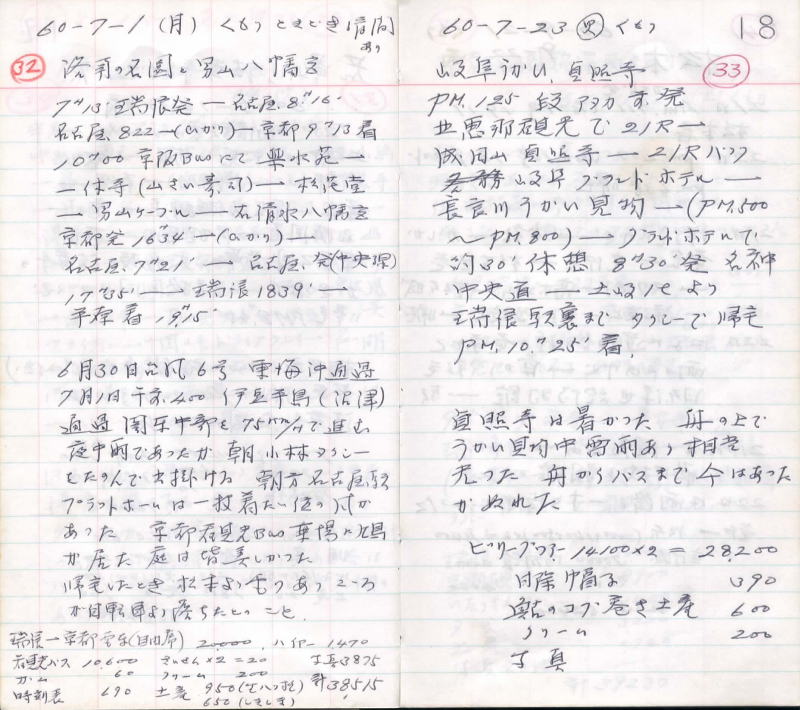 60-7-1 (月) くもりときどき晴 雨あり
32 洛南の名園と男山八幡宮
7°13' 瑞浪発 — 名古屋 8°16'
名古屋 822 —(ひかり)— 京都 9°13着
10°00 京阪Busにて 一
一休寺 (山さい寿司) — 松花堂
— 男山ケーブル — 石清水八幡宮
京都発 16°34' —(ひかり)—
名古屋 7°21' — 名古屋発(中央線)
17°35' — 瑞浪 1839' —
平原着 19°15'
6月30日台風6号 東海沖通過
7月1日午前 400 伊豆半島(沼津)
通過 関東中部を75km/hで進む
夜中雨であったが 朝小林タクシー
をたのんで出掛ける 朝方名古屋駅
プラットホームは一枚着たい位の 風が
あった 京都観光Bus乗場に鳩
が居た 庭は皆美しかった
帰宅したとき松本より あり
が自転車より落ちたとのこと
瑞浪—京都 (自由席) 20,000 1,470
観光バス 10,600 さいせん×2=20 写真3875
ガム 60 クリーム 200 計38515
時刻表 690 土産 950 (生八つ橋)
650 (しましま)
18
60-7-23 (火) くもり
33
岐阜うかい、貞照寺
PM. 125 発
恵那観光で 21R —
成田山 貞照寺 — 21Rバス
岐阜グランドホテル —
長良川うかい見物 — (PM.500
~ PM. 800) — グランドホテルで
約30'休憩 8°30'発 名神
中央道 — 土岐ICより
瑞浪駅裏まで タクシーで帰宅
PM. 10°25'着.
貞照寺は暑かった 舟の上で
うかい見物中雷雨あり 相当
光った 舟からバスまで 傘はあった
がぬれた
14100×2 = 28,200
日除帽子 390
鮎のコブ巻き土産 600
クリーム 200
写真